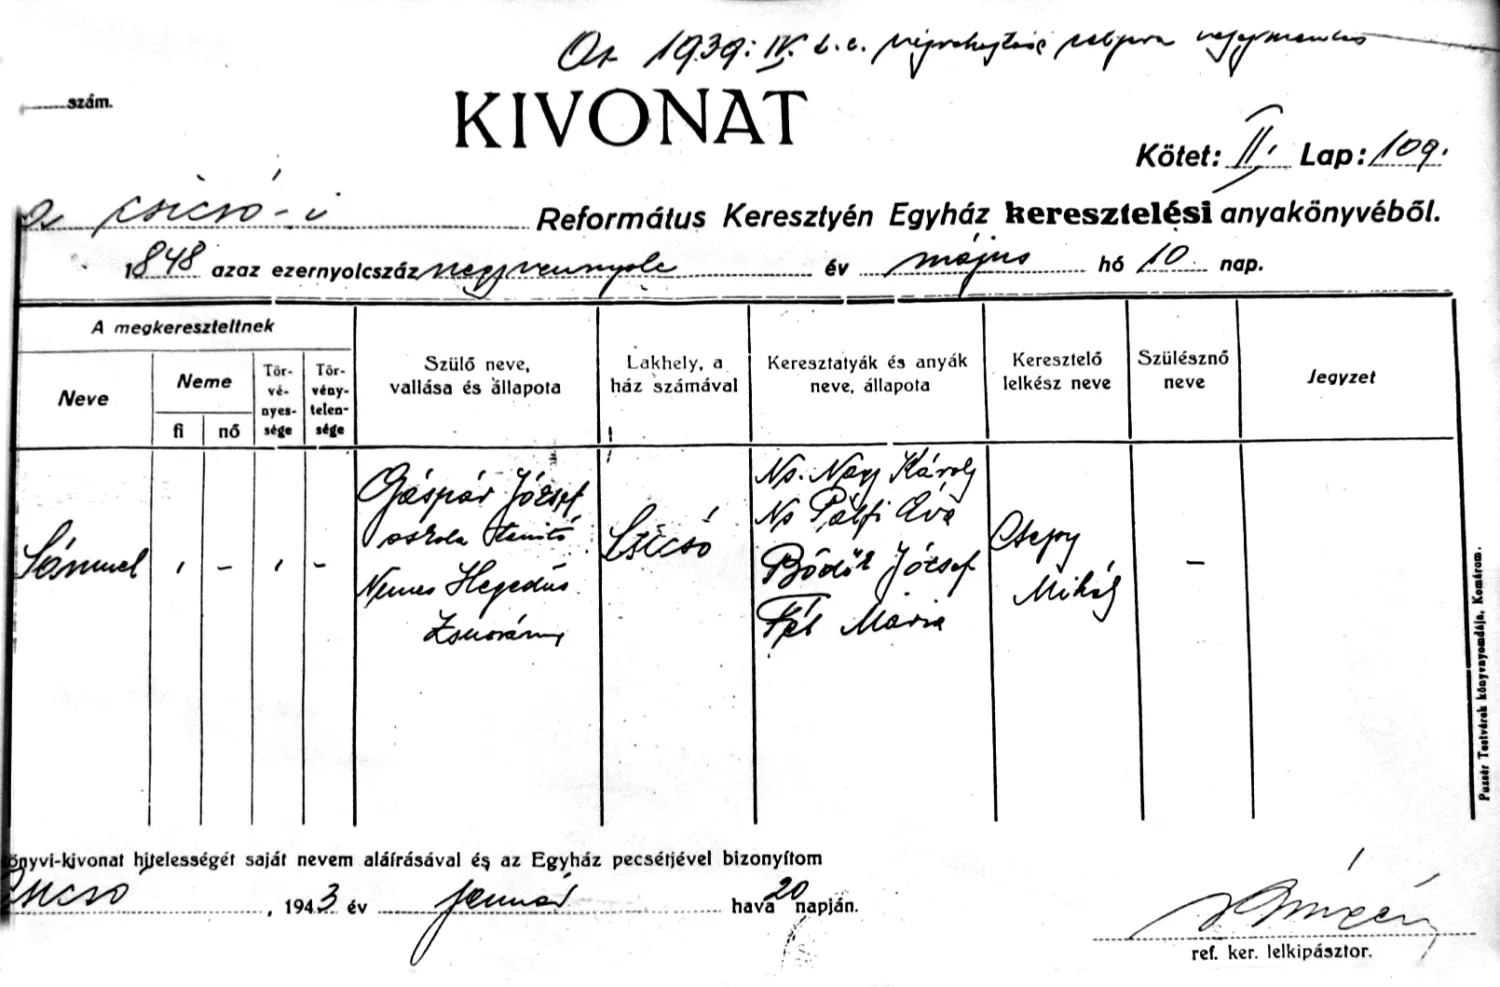 Az 1939: IV. t. c. végrehajtási
szám.
KIVONAT
Kötet: II. Lap: 109.
a csicsó-i Református Keresztyén Egyház keresztelési anyakönyvéből.
1848 azaz ezernyolcszáz negyvennyolc év május hó 10 nap.
A megkereszteltnek
Neve
Neme
fi
nő
Tör-
vé-
nyes-
sége
Tör-
vény-
telen-
sége
Szülő neve,
vallása és állapota
Lakhely, a
ház számával
Keresztatyák és anyák
neve, állapota
Keresztelő
lelkész neve
Szülésznő
neve
Jegyzet
Sámuel
ı
–
ı
–
Gáspár József
oskola tanító
Nemes Hegedüs
Zsuzsánna
Csicsó
Ns. Nagy Károly
Ns Pálfi Éva
Bődők József
Mária
Csepy
Mihály
–
önyvi-kivonat hitelességét saját nevem aláírásával és az Egyház pecsétjével bizonyítom
Csicsó, 1943 év január hava 20 napján.
ref. ker. lelkipásztor.
Puzsér Testvérek könyvnyomdája, Komárom.